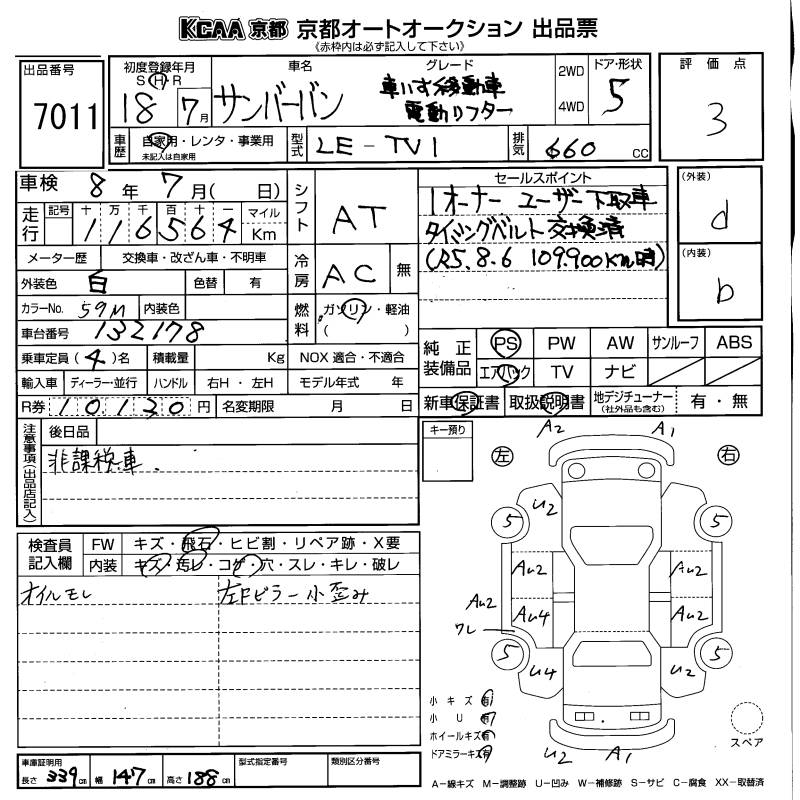 KCAA 京都 京都オートオークション 出品票
《赤枠内は必ず記入して下さい》
出品番号
7011
初度登録年月
S・H・R
18 年 7 月
車名
サンバーバン
グレード
車いす移動車
電動リフター
2WD
4WD
ドア・形状
5
評価点
3
車歴
自家用・レンタ・事業用
未記入は自家用
型式
LE-TV1
排気
660 cc
車検 8 年 7 月( 日)
走行
記号 十 万 千 百 十 一 マイル
116564 Km
シフト
AT
メーター歴 交換車・改ざん車・不明車
外装色 白 色替 有
冷房
AC 無
カラーNo. 59M 内装色
燃料
ガソリン・軽油
( )
車台番号 132178
乗車定員 (4)名 積載量 Kg NOX 適合・不適合
輸入車 ディーラー・並行 ハンドル 右H・左H モデル年式 年
R券 10,130 円 名変期限 月 日
セールスポイント
1オーナー ユーザー下取車
タイミングベルト交換済
(R5.8.6 109.900Km時)
(外装)
d
(内装)
b
純正装備品
PS PW AW サンルーフ ABS
エアバック TV ナビ
新車保証書 取扱説明書 地デジチューナー (社外品も含む) 有・無
注意事項(出品店記入)
後日品
非課税車.
キー預り
検査員記入欄
FW キズ・飛石・ヒビ割・リペア跡・X要
内装 キズ・汚レ・コゲ・穴・スレ・キレ・破レ
オイルモレ
左Fピラー小歪み
A2 A1
左 右
U2
5 5
AU2 AU2
AU2
AU4 AU2
ワレ
5 5
U4 U2
U2 A1
小キズ 有
小U 有
ホイールキズ 有
ドアミラーキズ 有
スペア
車庫証明用
長さ 339 cm 幅 147 cm 高さ 188 cm
型式指定番号
類別区分番号
A-線キズ M-調整跡 U-凹み W-補修跡 S-サビ C-腐食 XX-取替済